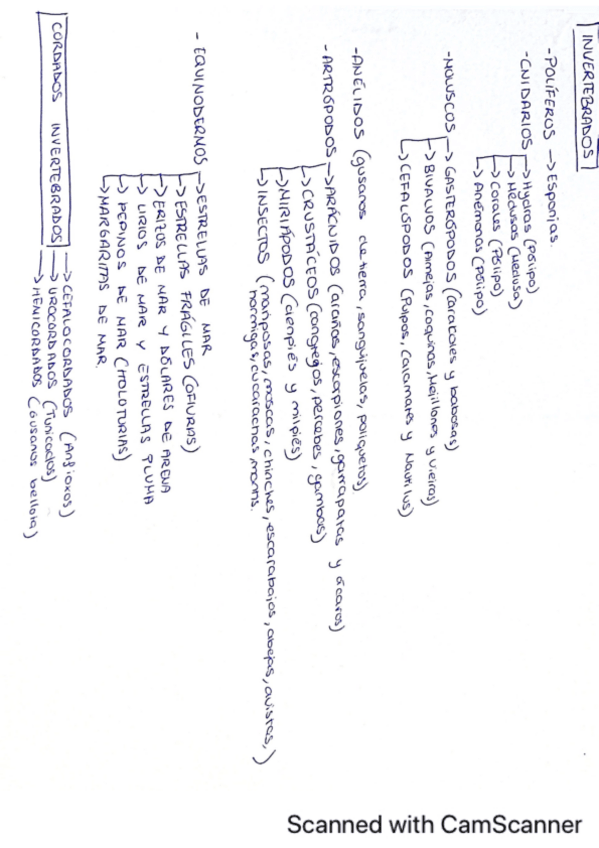 INVERTEBRADOS
-POLÍFEROS → Esponjas.
-CNIDARIOS → Hydras (Pólipo)
→ Medusas (Medusa)
→ Corales (Pólipo)
→ Anémonas (Pólipo)
-MOLUSCOS → GASTERÓPODOS (caracoles y babosas)
→ BIVALVOS (Almejas, coquinas, Mejillones y vieiras)
→ CEFALÓPODOS (Pulpos, calamares y Nautilus)
-ANÉLIDOS (gusanos de tierra, sanguijuelas, poliquetos)
-ARTRÓPODOS → ARÁCNIDOS (arañas, escorpiones, garrapatas y ácaros)
→ CRUSTÁCEOS (cangrejos, percebes, gambas)
→ MIRIÁPODOS (ciempiés y milpiés)
→ INSECTOS (mariposas, moscas, chinches, escarabajos, abejas, avispas,
hormigas, cucarachas,
- EQUINODERMOS → ESTRELLAS DE MAR
→ ESTRELLAS FRÁGILES (OFIURAS)
→ ERIZOS DE MAR Y DÓLARES DE ARENA
→ LIRIOS DE MAR Y ESTRELLAS PLUMA
→ PEPINOS DE MAR (HOLOTURIAS)
→ MARGARITAS DE MAR.
CORDADOS INVERTEBRADOS → CEFALOCORDADOS (Anfioxos)
→ UROCORDADOS (Tunicados)
→ HEMICORDADOS (Gusanos bellota)
Scanned with CamScanner